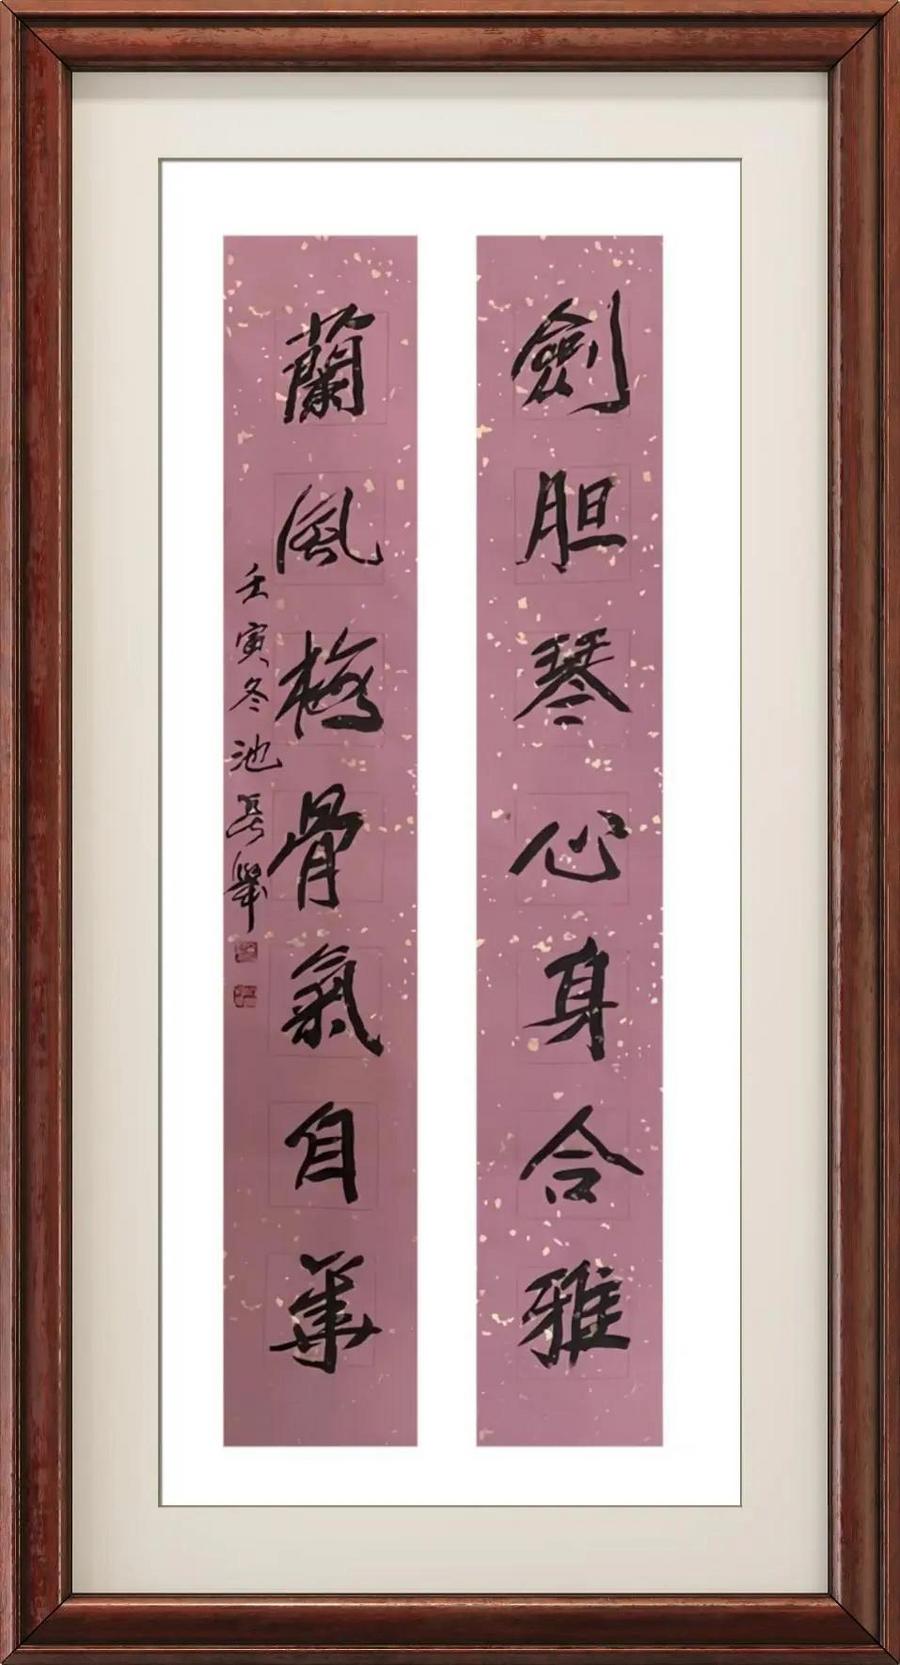 劍胆琴心身合雅
蘭風梅骨氣自華
壬寅冬池